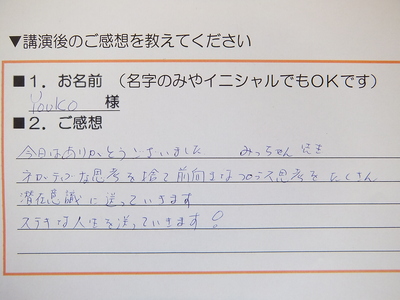 ▼講演後のご感想を教えてください
■1. お名前 (名字のみやイニシャルでもOKです)
Youko 様
■2. ご感想
今日はありがとうございました みっちゃん先生
ネガティブな思考を捨て前向きなプラス思考をたくさん
潜在意識に送っていきます
ステキな人生を送っていきます!